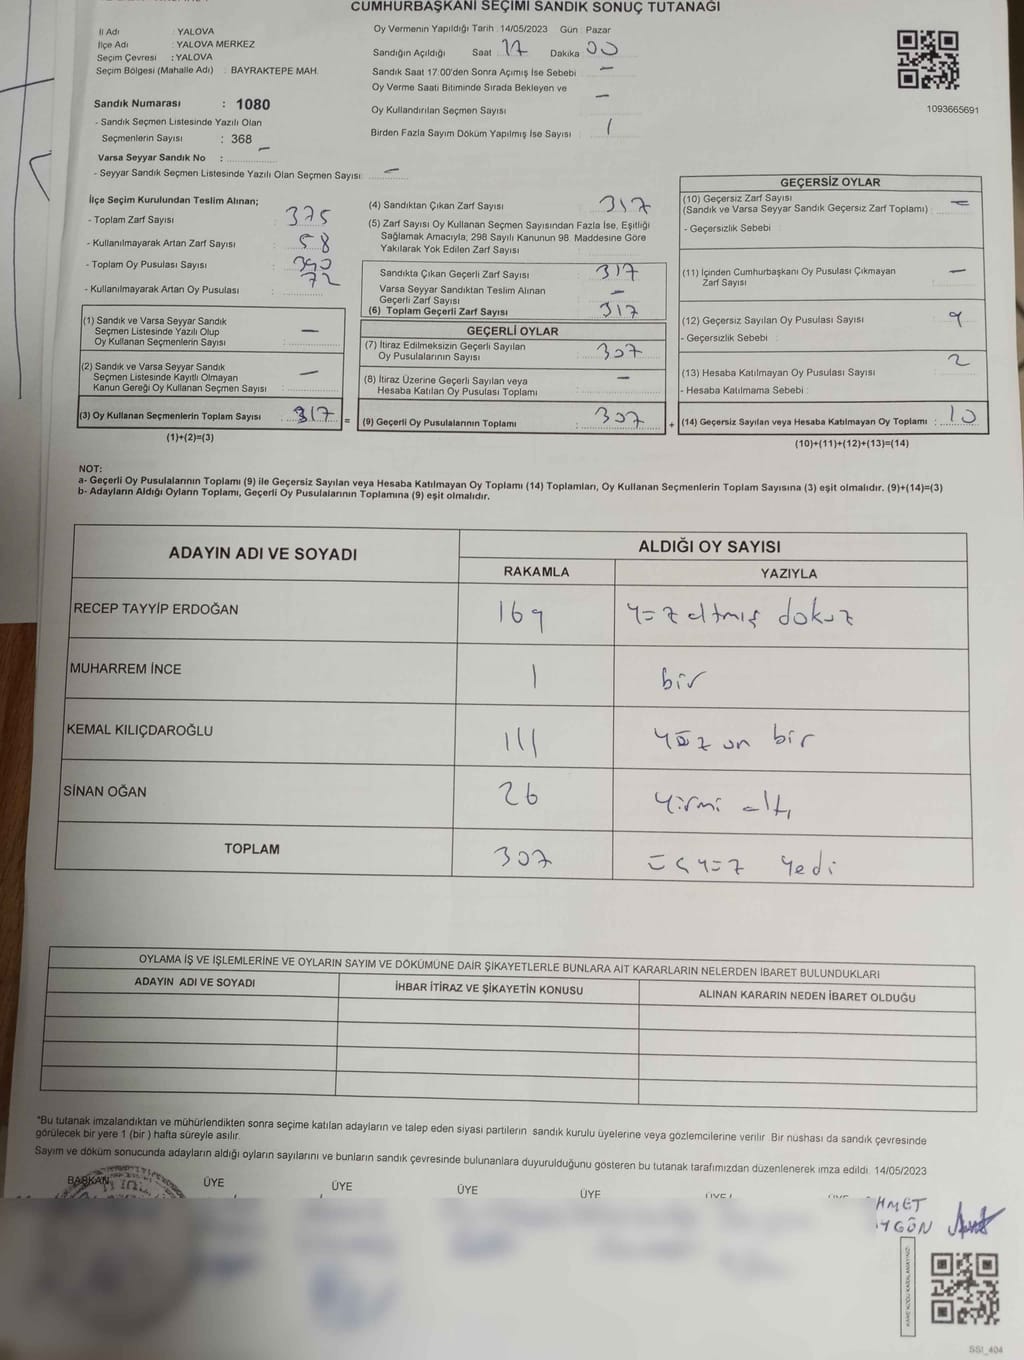 CUMHURBAŞKANI SEÇİMİ SANDIK SONUÇ TUTANAĞI
İl Adı : YALOVA
İlçe Adı : YALOVA MERKEZ
Seçim Çevresi : YALOVA
Seçim Bölgesi (Mahalle Adı) : BAYRAKTEPE MAH.
Oy Vermenin Yapıldığı Tarih : 14/05/2023 Gün : Pazar
Sandığın Açıldığı Saat 17 Dakika 00
Sandık Saat 17:00'den Sonra Açımış İse Sebebi —
Oy Verme Saati Bitiminde Sırada Bekleyen ve
Oy Kullandırılan Seçmen Sayısı —
Birden Fazla Sayım Döküm Yapılmış İse Sayısı : /
1093665691
Sandık Numarası : 1080
- Sandık Seçmen Listesinde Yazılı Olan
Seçmenlerin Sayısı : 368
Varsa Seyyar Sandık No : —
- Seyyar Sandık Seçmen Listesinde Yazılı Olan Seçmen Sayısı : —
İlçe Seçim Kurulundan Teslim Alınan;
- Toplam Zarf Sayısı : 375
- Kullanılmayarak Artan Zarf Sayısı : 58
- Toplam Oy Pusulası Sayısı : 390
- Kullanılmayarak Artan Oy Pusulası : 72
(1) Sandık ve Varsa Seyyar Sandık
Seçmen Listesinde Yazılı Olup
Oy Kullanan Seçmenlerin Sayısı : —
(2) Sandık ve Varsa Seyyar Sandık
Seçmen Listesinde Kayıtlı Olmayan
Kanun Gereği Oy Kullanan Seçmen Sayısı : —
(3) Oy Kullanan Seçmenlerin Toplam Sayısı : 317 =
(1)+(2)=(3)
(4) Sandıktan Çıkan Zarf Sayısı : 317
(5) Zarf Sayısı Oy Kullanan Seçmen Sayısından Fazla İse, Eşitliği
Sağlamak Amacıyla, 298 Sayılı Kanunun 98. Maddesine Göre
Yakılarak Yok Edilen Zarf Sayısı
Sandıkta Çıkan Geçerli Zarf Sayısı : 317
Varsa Seyyar Sandıktan Teslim Alınan
Geçerli Zarf Sayısı : —
(6) Toplam Geçerli Zarf Sayısı : 317
GEÇERLİ OYLAR
(7) İtiraz Edilmeksizin Geçerli Sayılan
Oy Pusulalarının Sayısı : 307
(8) İtiraz Üzerine Geçerli Sayılan veya
Hesaba Katılan Oy Pusulası Toplamı : —
(9) Geçerli Oy Pusulalarının Toplamı : 307 +
GEÇERSİZ OYLAR
(10) Geçersiz Zarf Sayısı
(Sandık ve Varsa Seyyar Sandık Geçersiz Zarf Toplamı) : —
- Geçersizlik Sebebi :
(11) İçinden Cumhurbaşkanı Oy Pusulası Çıkmayan
Zarf Sayısı : —
(12) Geçersiz Sayılan Oy Pusulası Sayısı : 9
- Geçersizlik Sebebi :
(13) Hesaba Katılmayan Oy Pusulası Sayısı : 2
- Hesaba Katılmama Sebebi :
(14) Geçersiz Sayılan veya Hesaba Katılmayan Oy Toplamı : 10
(10)+(11)+(12)+(13)=(14)
NOT:
a- Geçerli Oy Pusulalarının Toplamı (9) ile Geçersiz Sayılan veya Hesaba Katılmayan Oy Toplamı (14) Toplamları, Oy Kullanan Seçmenlerin Toplam Sayısına (3) eşit olmalıdır. (9)+(14)=(3)
b- Adayların Aldığı Oyların Toplamı, Geçerli Oy Pusulalarının Toplamına (9) eşit olmalıdır.
ADAYIN ADI VE SOYADI
ALDIĞI OY SAYISI
RAKAMLA YAZIYLA
RECEP TAYYİP ERDOĞAN 169 yüz altmış dokuz
MUHARREM İNCE 1 bir
KEMAL KILIÇDAROĞLU 111 yüz on bir
SİNAN OĞAN 26 yirmi altı
TOPLAM 307 üçyüz yedi
OYLAMA İŞ VE İŞLEMLERİNE VE OYLARIN SAYIM VE DÖKÜMÜNE DAİR ŞİKAYETLERLE BUNLARA AİT KARARLARIN NELERDEN İBARET BULUNDUKLARI
ADAYIN ADI VE SOYADI İHBAR İTİRAZ VE ŞİKAYETİN KONUSU ALINAN KARARIN NEDEN İBARET OLDUĞU
*Bu tutanak imzalandıktan ve mühürlendikten sonra seçime katılan adayların ve talep eden siyasi partilerin sandık kurulu üyelerine veya gözlemcilerine verilir. Bir nüshası da sandık çevresinde
görülecek bir yere 1 (bir) hafta süreyle asılır.
Sayım ve döküm sonucunda adayların aldığı oyların sayılarını ve bunların sandık çevresinde bulunanlara duyurulduğunu gösteren bu tutanak tarafımızdan düzenlenerek imza edildi. 14/05/2023
BAŞKAN ÜYE ÜYE ÜYE ÜYE ÜYE
HMET
YGÜN
SSI_404